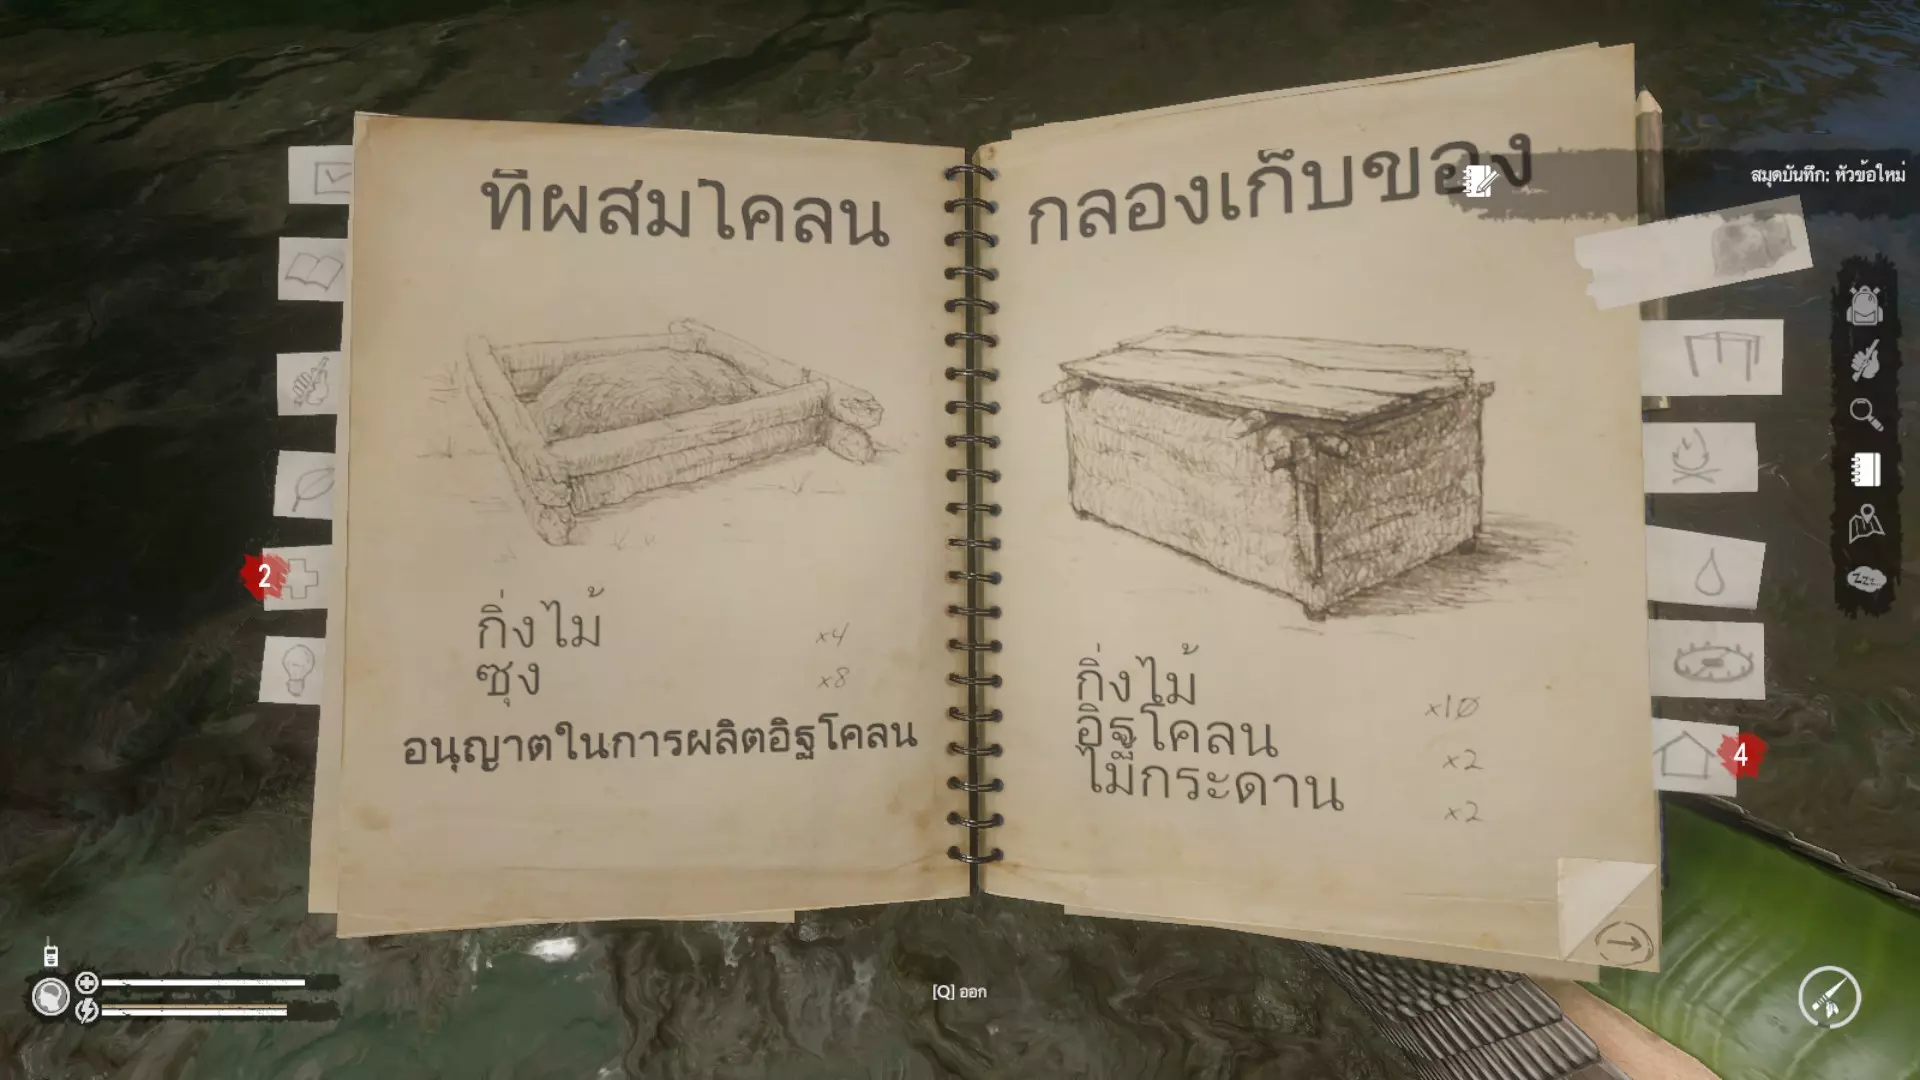 ที่ผสมโคลน
กิ่งไม้ x4
ซุง x8
อนุญาตในการผลิตอิฐโคลน
กลองเก็บของ
กิ่งไม้ x10
อิฐโคลน x2
ไม้กระดาน x2
สมุดบันทึก: หัวข้อใหม่
2
4
Zzz
[Q] ออก